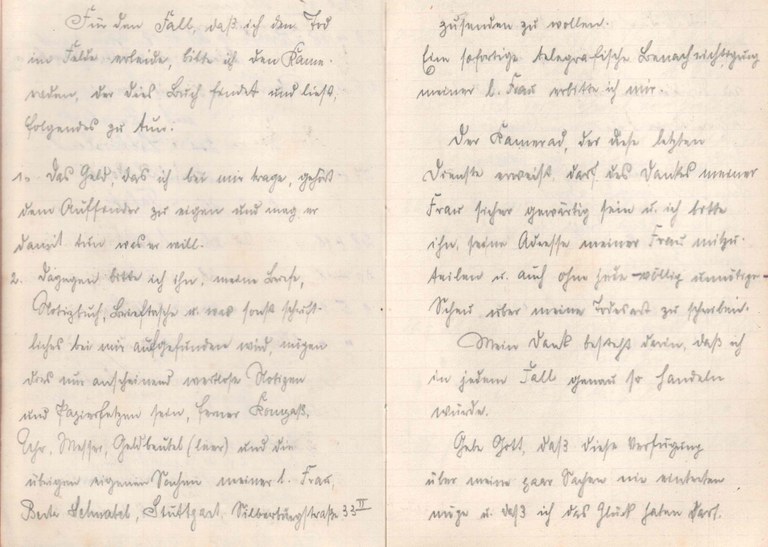 Für den Fall, daß ich den Tod
im Felde erleide, bitte ich den Kame-
raden, der dies Buch findet und liest,
folgendes zu tun.
1. Das Geld, das ich bei mir trage, gehört
dem Auffinder zu eigen und mag er
damit tun was er will.
2. Dagegen bitte ich ihn, meine Briefe,
Notizbuch, Brieftasche u. was sonst schrift-
liches bei mir aufgefunden wird, mögen
dies nur anscheinend wertlose Notizen
und Papierfetzen sein, ferner Kompaß,
Uhr, Messer, Geldbeutel (leer) und die
übrigen eigenen Sachen meiner l. Frau,
Berta Stuttgart, Silberburgstraße 33 II
zusenden zu wollen.
Eine sofortige telegrafische Benachrichtigung
meiner l. Frau erbitte ich mir.
Der Kamerad, der diese letzten
Dienste erweist, darf des Dankes meiner
Frau sicher gewärtig sein u. ich bitte
ihn, seine Adresse meiner Frau mitzu-
teilen u. auch ohne jede – völlig unnötige –
Scheu über meine Todesart zu schreiben.
Mein Dank besteht darin, daß ich
in jedem Fall genau so handeln
würde.
Gebe Gott, daß diese Verfügung
über meine paar Sachen nie eintreten
möge u. daß ich das Glück haben darf.